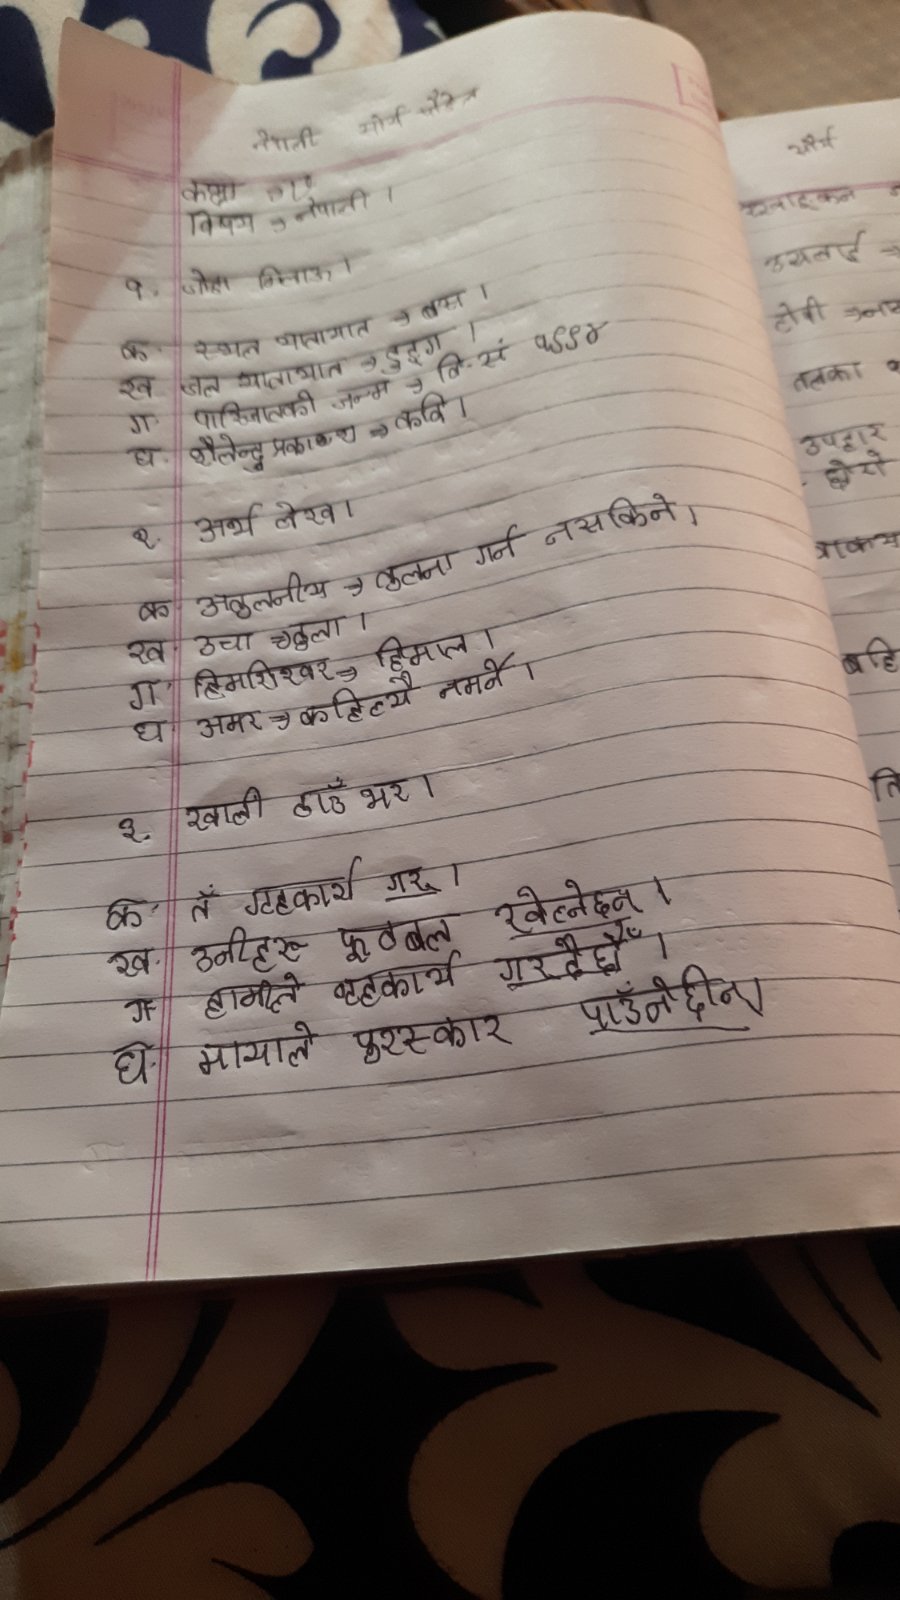 नेपाली
कक्षा
विषय → नेपाली ।
१. जोडा मिलाऊ ।
क. स्थल यातायात → बस ।
ख. जल यातायात → डुङ्गा ।
ग. पारिजातको जन्म → वि.सं १९९४
घ. शैलेन्द्र प्रकाश → कवि ।
२. अर्थ लेख ।
क. अतुलनीय → तुलना गर्न नसकिने ।
ख. उचा → ठुला ।
ग. हिमशिखर → हिमाल ।
घ. अमर → कहिल्यै नमर्ने ।
३. खाली ठाउँ भर ।
क. तँ गृहकार्य गर् ।
ख. उनीहरू फूटबल खेल्नेछन् ।
ग. हामीले गृहकार्य गरदैछौँ ।
घ. मायाले पुरस्कार पाउँनेछीन्
उसलाई →
टोपी →
तलका
उपहार
वाक्य
बहि
ति